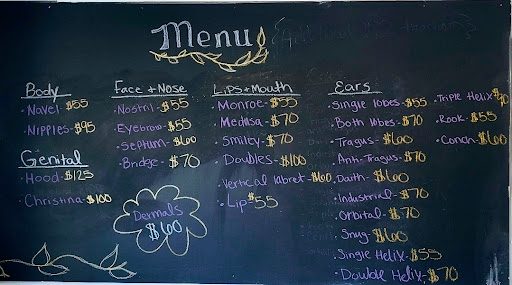 Menu
Body
· Navel - $55
· Nipples - $95
Genital
· Hood - $125
· Christina - $100
Face + Nose
· Nostril - $55
· Eyebrow - $55
· Septum - $60
· Bridge - $70
Dermals
$60
Lips + Mouth
· Monroe - $55
· Medusa - $70
· Smiley - $70
· Doubles - $100
· Vertical labret - $60
· Lip $55
Ears
· Single lobes - $55
· Both lobes - $70
· Tragus - $60
· Anti-Tragus - $70
· Daith - $60
· Industrial - $70
· Orbital - $70
· Snug - $60
· Single Helix - $55
· Double Helix - $70
· Triple Helix $70
· Rook - $55
· Conch - $60